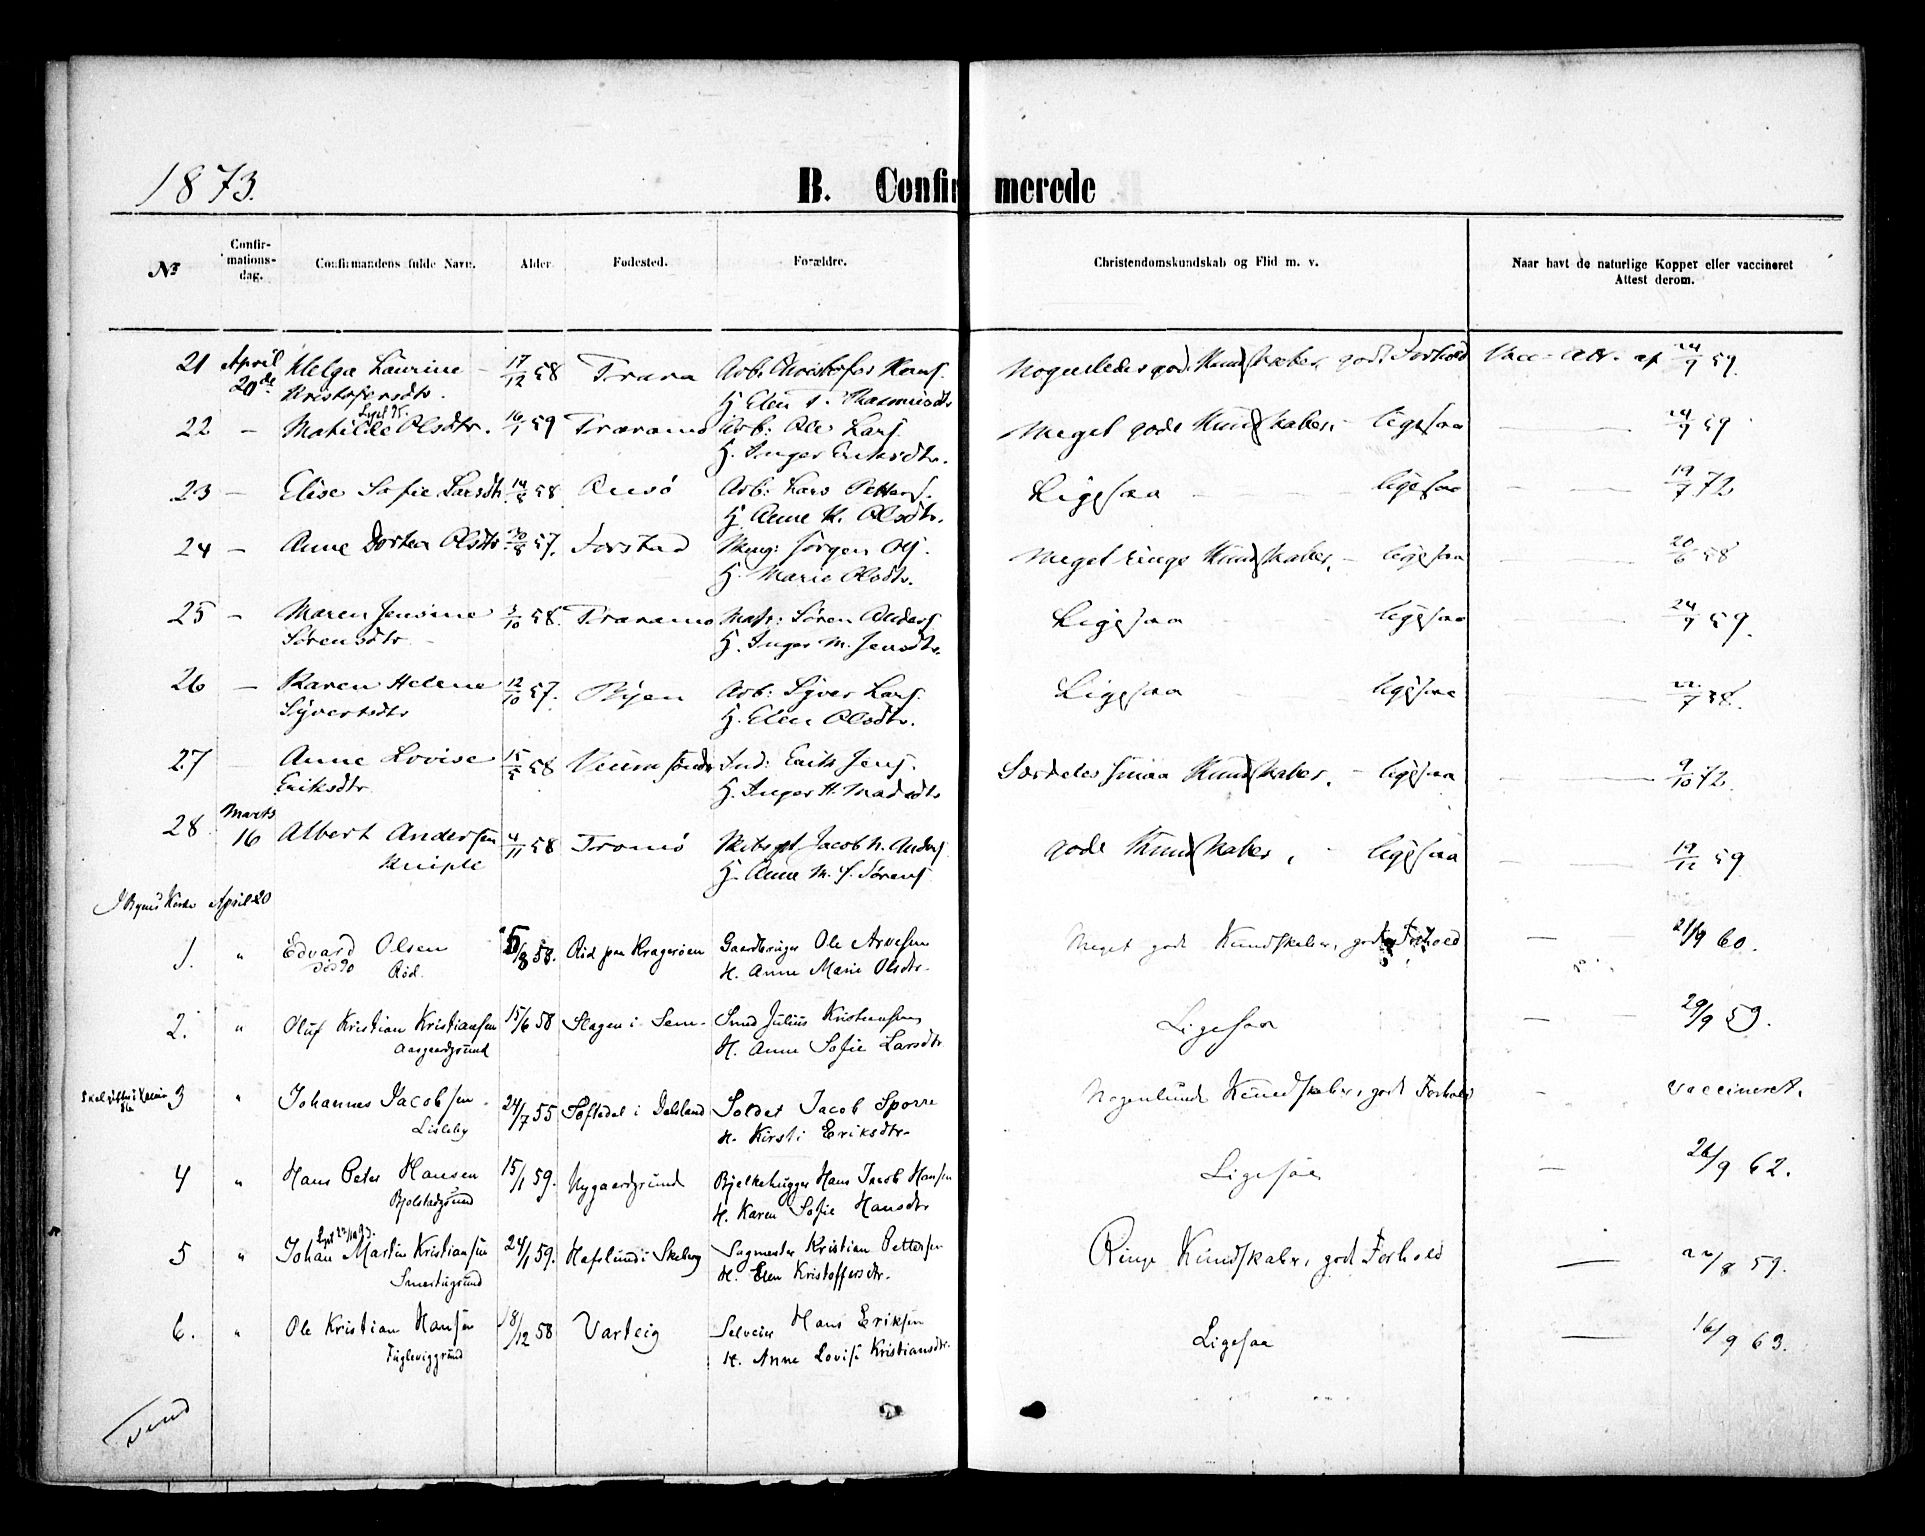 1873.
B. Confirmerede
No
Confir-
mations-
dag.
Confirmandens fulde Navn.
Alder
Fødested.
Forældre.
Christendomskundskab og Flid m. v.
Naar havt de naturlige Kopper eller vaccineret
Attest derom.
21 April 20de Helga Laurine 17/12 58 Trara Arb: Kristofer Hans. Nogenledes gode Kundskaber, godt Forhold Vacc. Att. af 24/9 59.
Kristofersdtr. H. Elen Rasmusdtr
22 — Matilde Olsdtr. 16/1 59 Traramo Arb: Ole Lars. Meget gode Kundskaber, — ligesaa — — 24/9 59
H. Inger Eriksdtr.
23 — Elise Sofie Larsdtr. 14/8 58 Arb: Lars Petters. Ligesaa — ligesaa — — 19/7 72
H. Anne K. Olsdtr.
24 — Anne Dortea Olsdtr. 30/8 57. Torstad Jørgen Ols. Meget ringe Kundskaber, — ligesaa — 20/6 58
H. Marie Olsdtr.
25 — Maren Jensine 3/10 58. Traramo Matr: Søren Anders. Ligesaa ligesaa — 24/9 59.
Sørensdtr H. Inger M. Jensdtr.
26 — Karen Helene 12/10 57. Byen Arb: Syver Lars. Ligesaa ligesaa — 22/7 58.
Syvertsdtr H. Elen Olsdtr.
27 — Anne Lovise 15/5 58 Veum søndr Ind: Erik Jens. Særdeles smaa Kundskaber, — ligesaa — 9/10 72.
Eriksdtr H. Inger H. Madsdtr
28. Marts 16 Albert Andersen 4/11 58 Tromø Jacob N. Anders. gode Kundskaber, — ligesaa — — 19/11 59
Kniple H. Anne M. S. Sørens.
I Byens Kirke April 20
1. " Edvard Olsen 5/8 58. Rød paa Kragerøen Gaardbruger Ole Arvesen Meget gode Kundskaber, godt Forhold — — 21/9 60.
Rød. H. Anne Marie Olsdtr.
2. " Oluf Kristian Kristiansen 15/6 58 Slagen i Sem. Smed Julius Kristiansen Ligesaa — — 29/9 59.
Aasgaardgrund H. Anne Sofie Larsdtr
3 " Johannes Jacobsen 24/7 55 Softedal i Dalsland Soldat Jacob Sporre Nogenlunde Kundskaber, godt Forhold — Vaccineret.
Lisleby H. Kirsti Eriksdtr.
4 " Hans Peter Hansen 15/1 59. Nygaardgrund Bjelkehugger Hans Jacob Hansen Ligesaa — 26/9 62.
Bjølstadgrund H. Karen Sofie Hansdtr
5 " Johan Martin Kristiansen 24/1 59. Hafslund i Skeberg Sagmester Kristian Pettersen Ringe Kundskaber, godt Forhold — 22/8 59.
Smertugrund H. Elen Kristoffersdtr.
6. " Ole Kristian Hansen 18/12 58 Varteig Selveier Hans Eriksen Ligesaa — 16/9 63.
Fugleviggrund H. Anne Lovise Kristiansdtr.
Vend